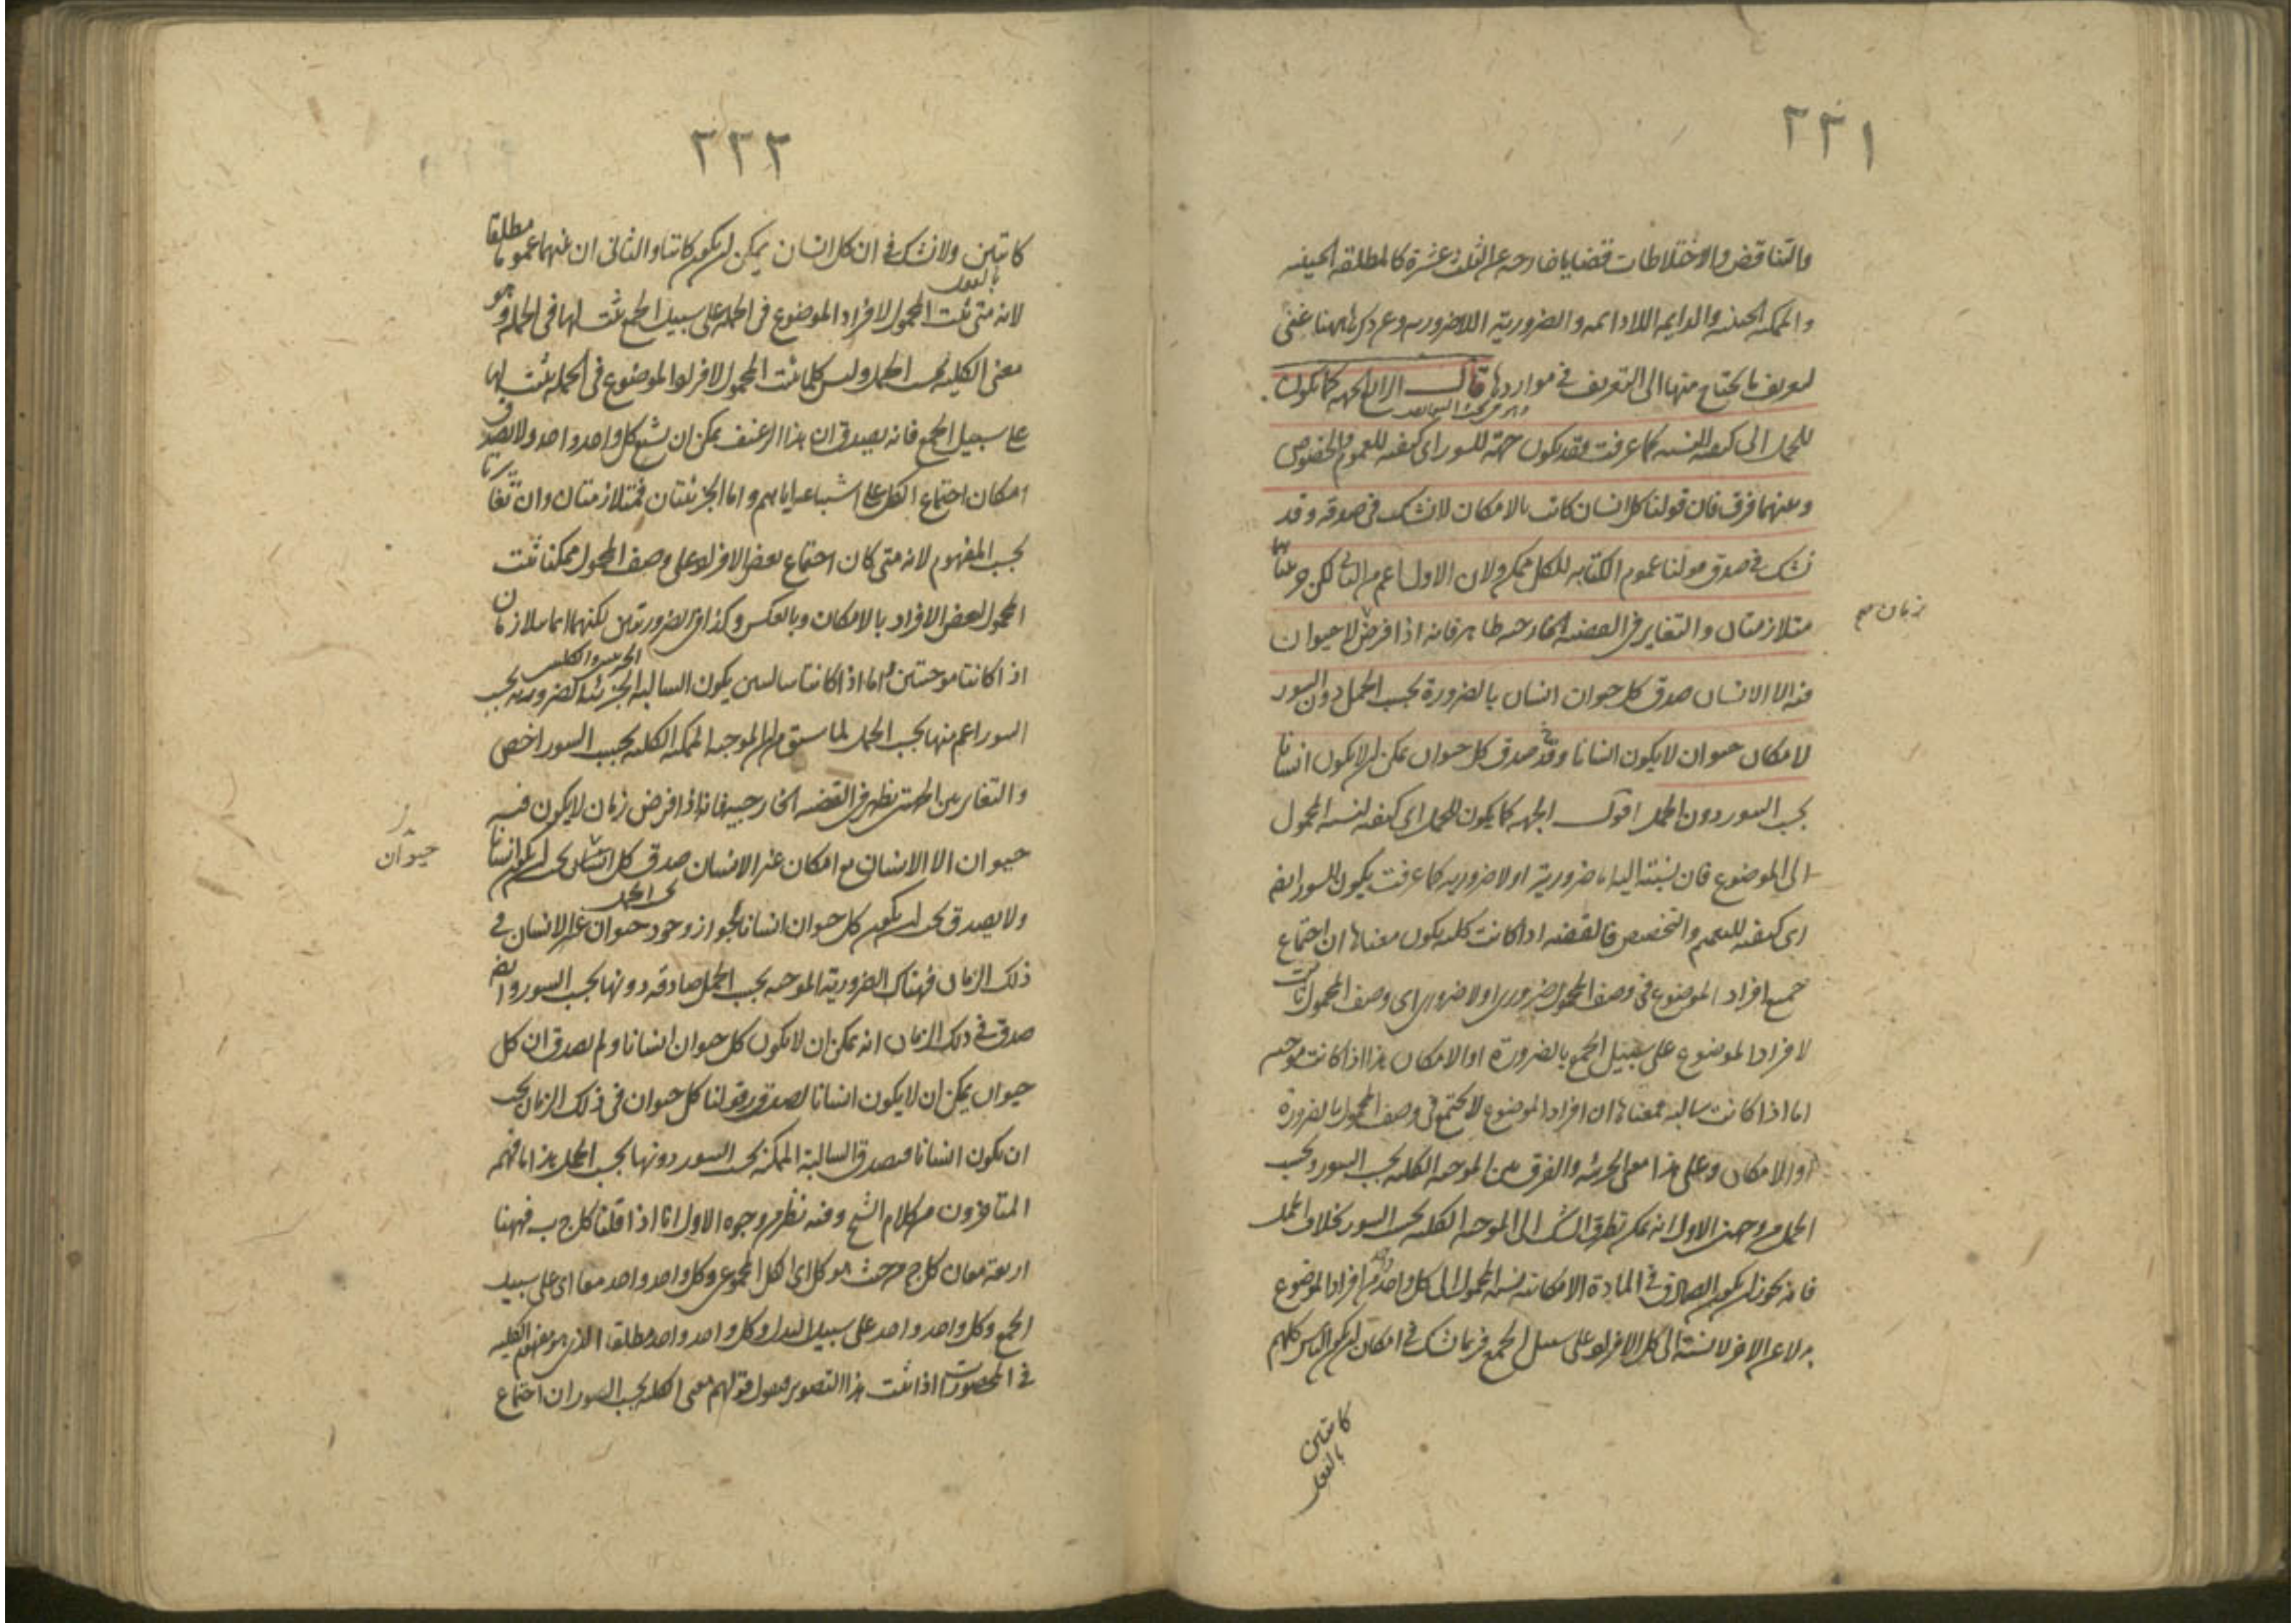 ٢٢١
والتناقض والاختلاطات قضايا خارجه عن الثلث عشرة كالمطلقه الحينيه
والممكنه الحينيه والدايمه اللادائمه والضرورية اللاضروريه وعن ذكرها ههنا غنى
لتعريف ما يحتاج منها الى التعريف في مواردها قال الجهه كما يكون
للحمل اى كيفيه للنسبه كما عرفت فقد يكون جهة للسور اى كيفيه للعموم والخصوص
وبينهما فرق فان قولنا كل انسان كاتب بالامكان لانشك فى صدقه وقد
نشك فى صدق قولنا عموم الكتابه للكل ممكن ولان الاول اعم من الثانى لكن جزئيتا هما
زمان
متلازمتان والتغاير فى القضيه الخارجيه ظاهر فانه اذا فرض لا حيوان
فيه الا الانسان صدق كل حيوان انسان بالضرورة بحسب الحمل دون السور
لامكان حيوان لا يكون انسانا وقد صدق كل حيوان يمكن ان لا يكون انسانا
بحسب السور دون الحمل اقول الجهه كما يكون للحمل اى كيفيه لنسبه المحمول
الى الموضوع فان نسبته اليه اما ضرورية او لاضروريه كما عرفت يكون للسور ايضا
اى كيفيه للتعميم والتخصيص فالقضيه اذا كانت كليه يكون معناها ان اجتماع
جميع افراد الموضوع فى وصف المحمول ضرورى او لاضرورى اى وصف المحمول ثابت
لافراد الموضوع على سبيل الجمع بالضرورة او الامكان هذا اذا كانت موجبه
اما اذا كانت سالبه فمعناها ان افراد الموضوع لا يجتمع فى وصف المحمول بالضرورة
او الامكان وعلى هذا معنى الجزئيه والفرق بين الموجبه الكليه بحسب السور وبحسب
الحمل من وجهين الاول انه يمكن تطرق الشك الى الموجبه الكليه بحسب السور بخلاف الحمل
فانه يجوز ان يكون الصادق فى المادة الامكانيه نسبه المحمول الى كل واحد واحد من افراد الموضوع
بدلا عن الاخر لا نسبته الى كل الافراد على سبيل الجمع فربما نشك فى امكان ان يكون الناس كلهم
كاتبين
بالفعل
٢٢٢
كاتبين ولا نشك فى ان كل انسان يمكن ان يكون كاتبا والثانى ان بينهما عموما مطلقا
بالفعل
لانه متى ثبت المحمول لافراد الموضوع فى الجمله على سبيل الجمع ثبت لها فى الجمله وهو
معنى الكليه بحسب الحمل وليس كلما ثبت المحمول لافراد الموضوع فى الجمله يثبت لها
على سبيل الجمع فانه يصدق ان هذا الرغيف يمكن ان يشبع كل واحد واحد ولا يصدق
امكان اجتماع الكل على اشباعه اياهم واما الجزئيتان فمتلازمتان وان تغايرتا
بحسب المفهوم لانه متى كان اجتماع بعض الافراد على وصف المحمول ممكنا ثبت
المحمول لبعض الافراد بالامكان وبالعكس وكذا فى الضروريتين لكنهما انما يتلازمان
اذا كانتا موجبتين اما اذا كانتا سالبتين يكون السالبه الجزئيه الضروريه بحسب
السور اعم منها بحسب الحمل لما سبق من ان الموجبه الممكنه الكليه بحسب السور اخص
والتغاير بين الجهتين يظهر فى القضيه الخارجيه فانه اذا فرض زمان لا يكون فيه
حيوان
حيوان الا الانسان مع امكان غير الانسان صدق كل انسان يجب ان يكون انسانا
بحسب الحمل
ولا يصدق يجب ان يكون كل حيوان انسانا لجواز وجود حيوان غير الانسان فى
ذلك الزمان فهناك الضرورية الموجبه بحسب الحمل صادقه دونها بحسب السور وايضا
صدق فى ذلك الزمان انه يمكن ان لا يكون كل حيوان انسانا ولم يصدق ان كل
حيوان يمكن ان لا يكون انسانا لصدق قولنا كل حيوان فى ذلك الزمان يجب
ان يكون انسانا فيصدق السالبة الممكنة بحسب السور دونها بحسب الحمل هذا ما فهم
المتاخرون من كلام الشيخ وفيه نظر من وجوه الاول انا اذا قلنا كل ج ب فههنا
اربعة معان كل ج من حيث هو كل اى الكل المجموعى وكل واحد واحد معا اى على سبيل
الجمع وكل واحد واحد على سبيل البدل وكل واحد واحد مطلقا الذى هو مفهوم الكليه
فى المحصورات اذا ثبت هذا التصوير فنقول قولهم معنى الكليه بحسب السور ان اجتماع